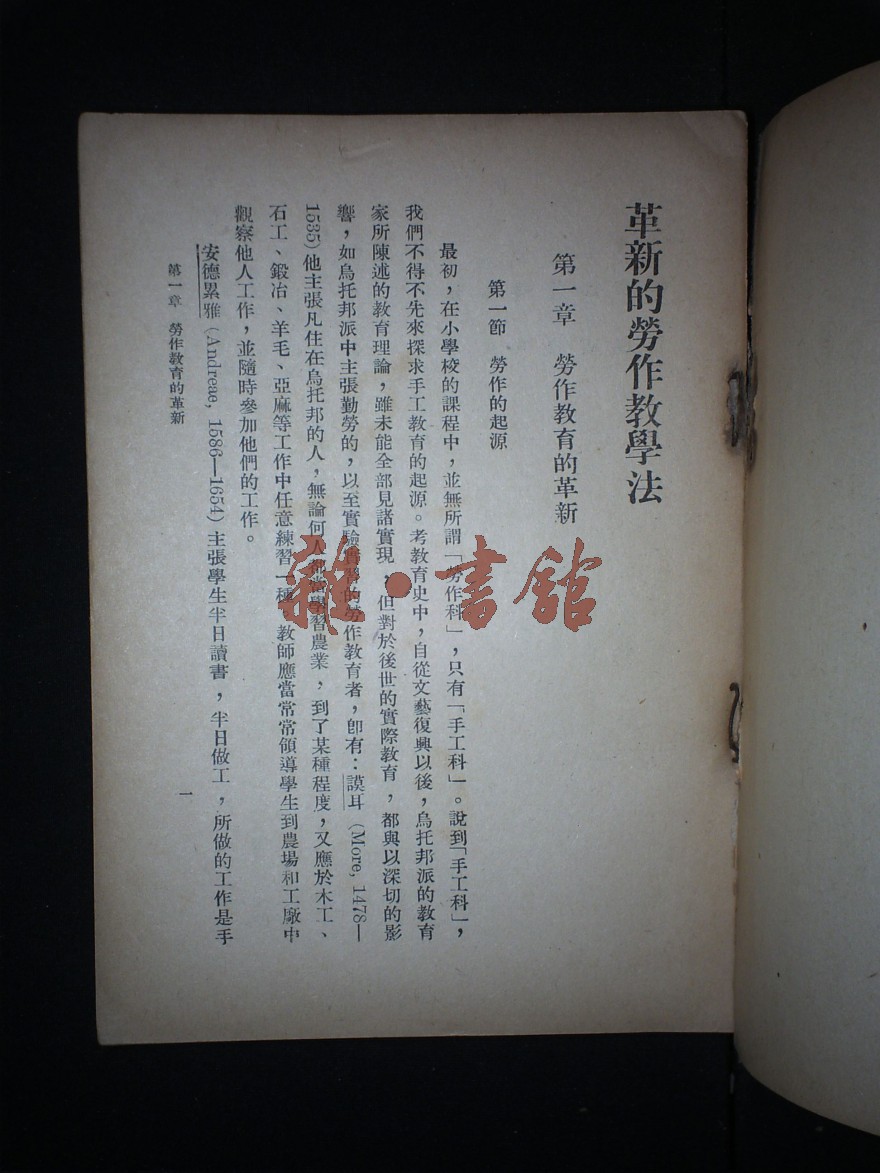 革新的勞作教學法
第一章　勞作教育的革新
第一節　勞作的起源
最初，在小學校的課程中，並無所謂「勞作科」，只有「手工科」。說到「手工科」，
我們不得不先來探求手工教育的起源。考教育史中，自從文藝復興以後，烏托邦派的教育
家所陳述的教育理論，雖未能全部見諸實現，但對於後世的實際教育，都與以深切的影
響，如烏托邦派中主張勤勞的，以至實驗的勞作教育者，卽有：謨耳（More, 1478—
1535）他主張凡住在烏托邦的人，無論何人都當學習農業，到了某種程度，又應於木工、
石工、鍛冶、羊毛、亞麻等工作中任意練習一種。教師應當常常領導學生到農場和工廠中
觀察他人工作，並隨時參加他們的工作。
安德累雅（Andreae, 1586—1654）主張學生半日讀書，半日做工，所做的工作是手
第一章　勞作教育的革新
一
雜·書館